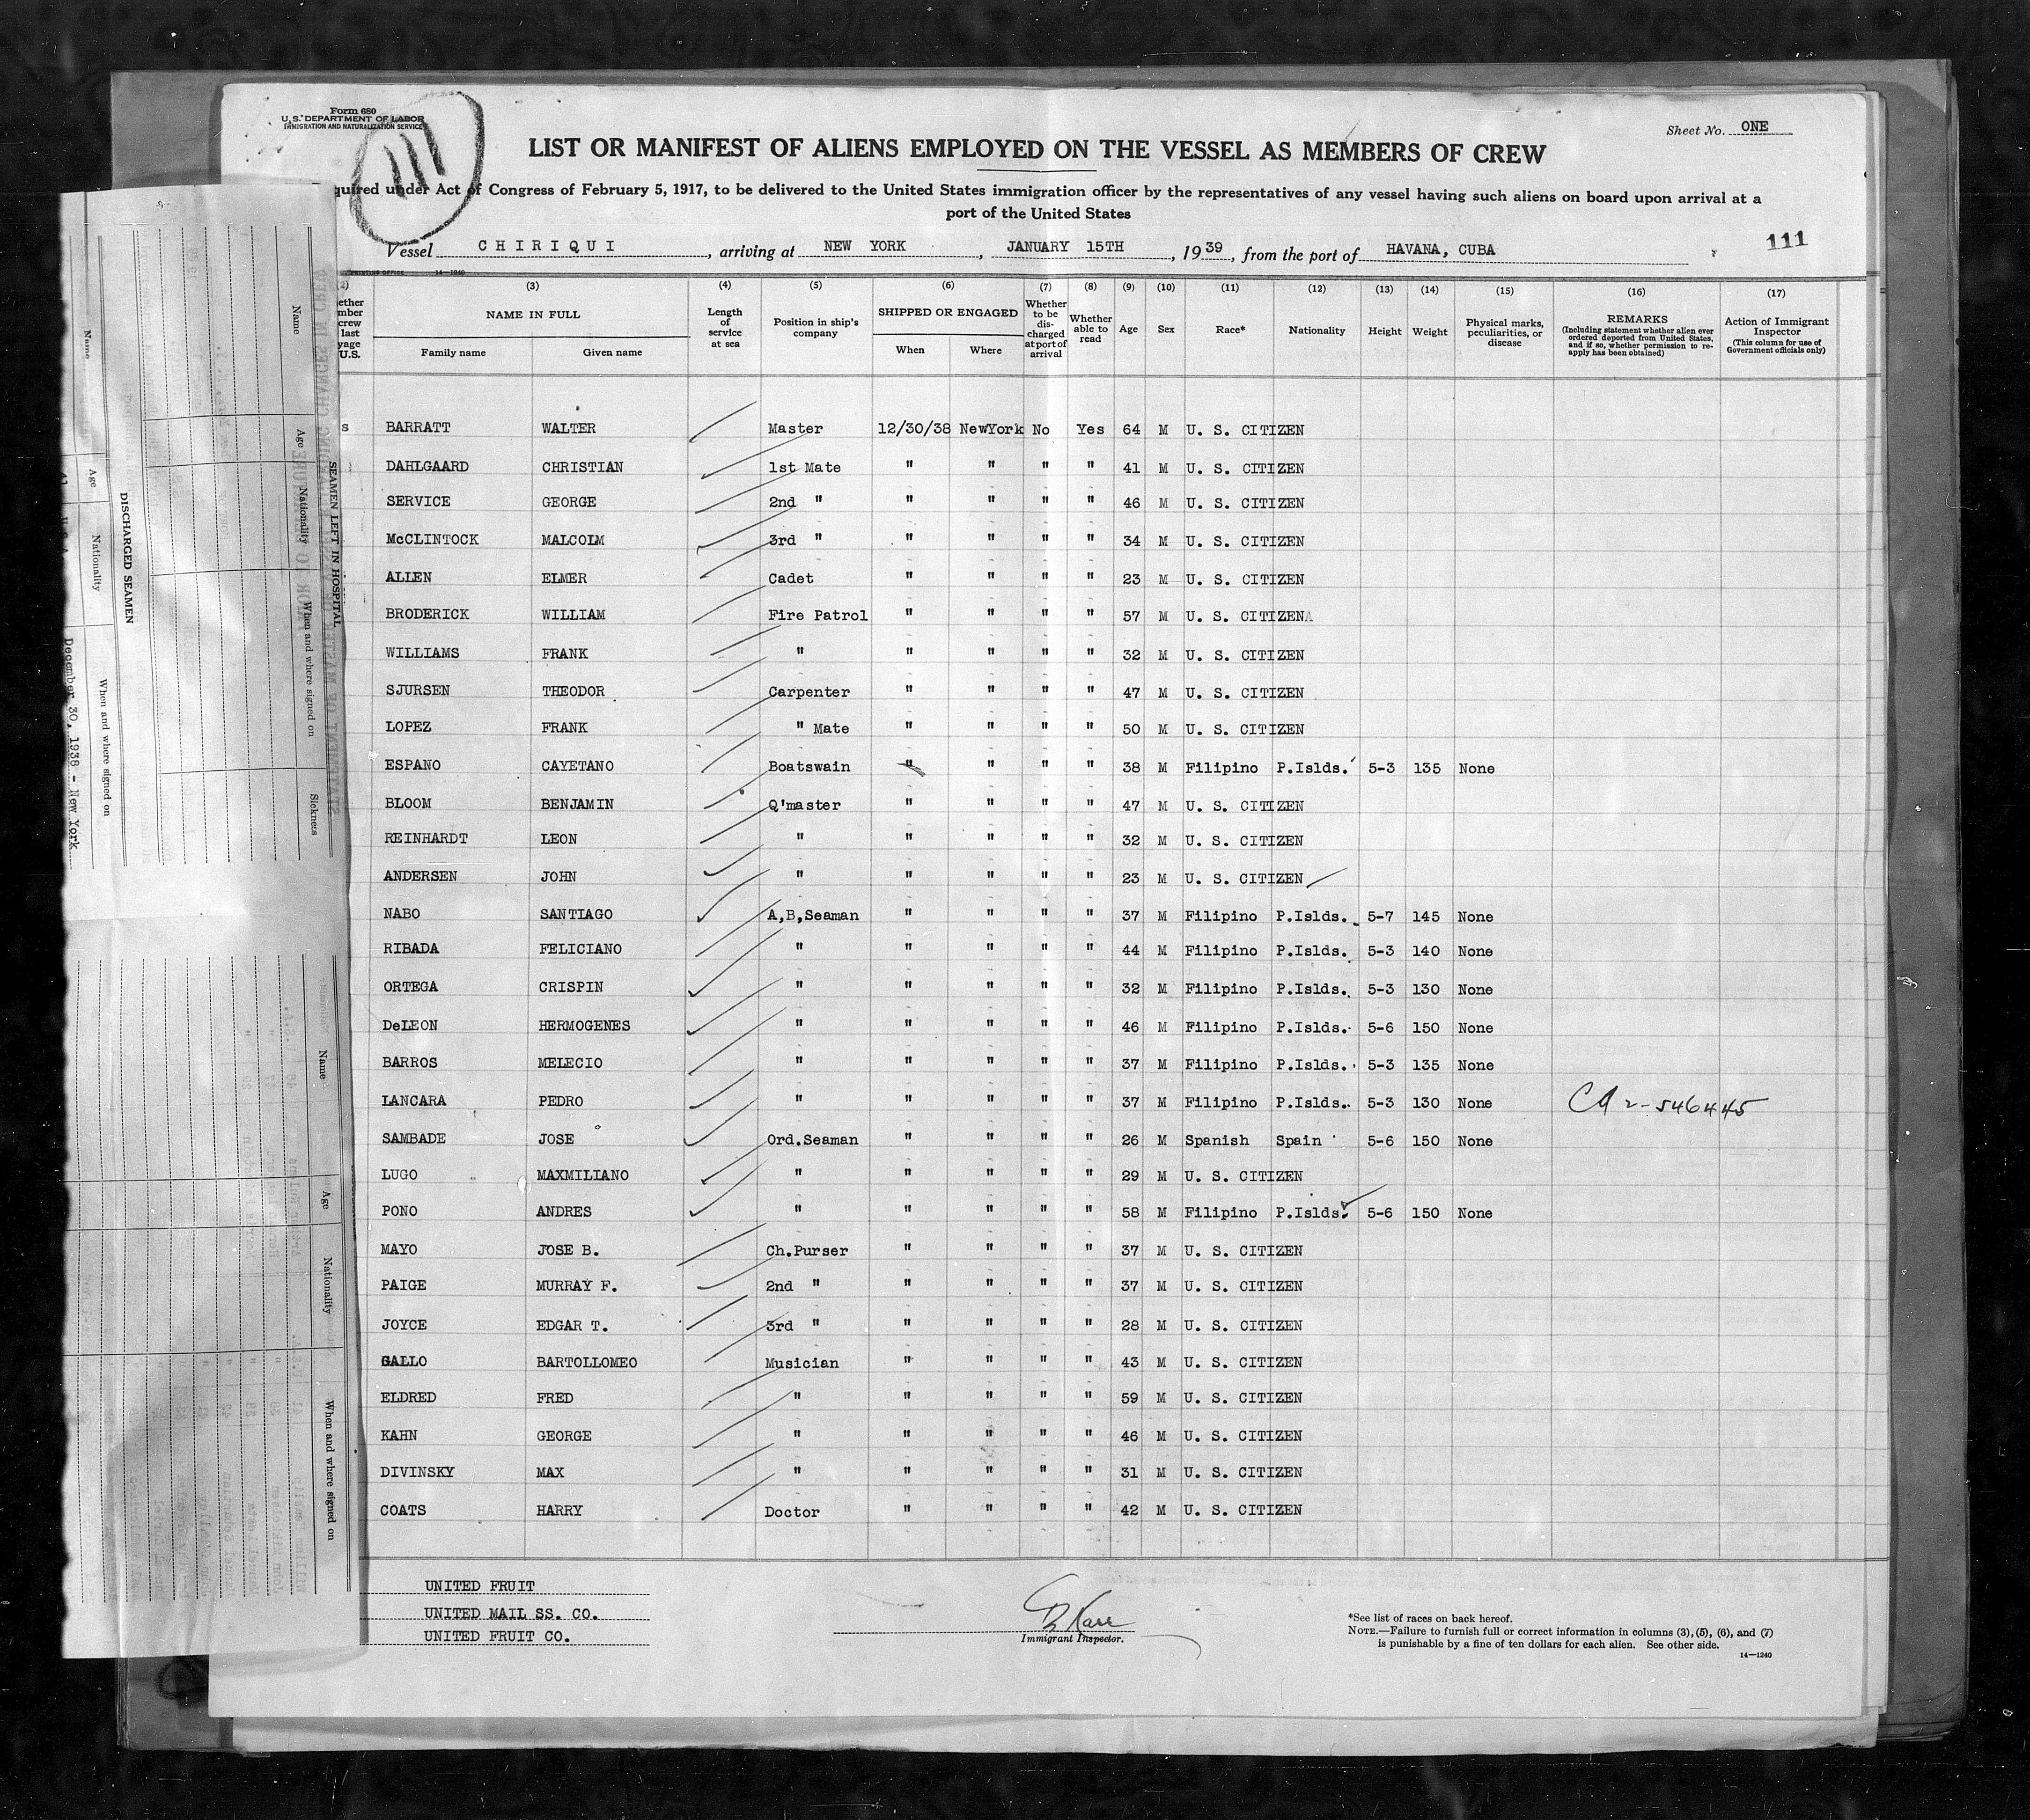 Form 680
U. S. DEPARTMENT OF LABOR
IMMIGRATION AND NATURALIZATION SERVICE
111
Sheet No. ONE
LIST OR MANIFEST OF ALIENS EMPLOYED ON THE VESSEL AS MEMBERS OF CREW
quired under Act of Congress of February 5, 1917, to be delivered to the United States immigration officer by the representatives of any vessel having such aliens on board upon arrival at a
port of the United States
Vessel CHIRIQUI, arriving at NEW YORK, JANUARY 15TH, 1939, from the port of HAVANA, CUBA
111
PRINTING OFFICE 14—1240
(2) (3) (4) (5) (6) (7) (8) (9) (10) (11) (12) (13) (14) (15) (16) (17)
ether mber crew last yage U.S.
NAME IN FULL
Family name Given name
Length of service at sea
Position in ship's company
SHIPPED OR ENGAGED
When Where
Whether to be discharged at port of arrival
Whether able to read
Age
Sex
Race*
Nationality
Height
Weight
Physical marks, peculiarities, or disease
REMARKS
(Including statement whether alien ever ordered deported from United States, and if so, whether permission to reapply has been obtained)
Action of Immigrant Inspector
(This column for use of Government officials only)
s BARRATT WALTER Master 12/30/38 NewYork No Yes 64 M U. S. CITIZEN
DAHLGAARD CHRISTIAN 1st Mate " " " " 41 M U. S. CITIZEN
SERVICE GEORGE 2nd " " " " " 46 M U. S. CITIZEN
McCLINTOCK MALCOLM 3rd " " " " " 34 M U. S. CITIZEN
ALLEN ELMER Cadet " " " " 23 M U. S. CITIZEN
BRODERICK WILLIAM Fire Patrol " " " " 57 M U. S. CITIZENA
WILLIAMS FRANK " " " " " 32 M U. S. CITIZEN
SJURSEN THEODOR Carpenter " " " " 47 M U. S. CITIZEN
LOPEZ FRANK " Mate " " " " 50 M U. S. CITIZEN
ESPANO CAYETANO Boatswain " " " " 38 M Filipino P.Islds. 5-3 135 None
BLOOM BENJAMIN Q'master " " " " 47 M U. S. CITIZEN
REINHARDT LEON " " " " " 32 M U. S. CITIZEN
ANDERSEN JOHN " " " " " 23 M U. S. CITIZEN
NABO SANTIAGO A,B,Seaman " " " " 37 M Filipino P.Islds. 5-7 145 None
RIBADA FELICIANO " " " " " 44 M Filipino P.Islds. 5-3 140 None
ORTEGA CRISPIN " " " " " 32 M Filipino P.Islds. 5-3 130 None
DeLEON HERMOGENES " " " " " 46 M Filipino P.Islds. 5-6 150 None
BARROS MELECIO " " " " " 37 M Filipino P.Islds. 5-3 135 None
LANCARA PEDRO " " " " " 37 M Filipino P.Islds. 5-3 130 None CA 2-546445
SAMBADE JOSE Ord.Seaman " " " " 26 M Spanish Spain 5-6 150 None
LUGO MAXMILIANO " " " " " 29 M U. S. CITIZEN
PONO ANDRES " " " " " 58 M Filipino P.Islds. 5-6 150 None
MAYO JOSE B. Ch.Purser " " " " 37 M U. S. CITIZEN
PAIGE MURRAY F. 2nd " " " " " 37 M U. S. CITIZEN
JOYCE EDGAR T. 3rd " " " " " 28 M U. S. CITIZEN
GALLO BARTOLLOMEO Musician " " " " 43 M U. S. CITIZEN
ELDRED FRED " " " " " 59 M U. S. CITIZEN
KAHN GEORGE " " " " " 46 M U. S. CITIZEN
DIVINSKY MAX " " " " " 31 M U. S. CITIZEN
COATS HARRY Doctor " " " " 42 M U. S. CITIZEN
UNITED FRUIT
UNITED MAIL SS. CO.
UNITED FRUIT CO.
Karr
Immigrant Inspector.
*See list of races on back hereof.
NOTE.—Failure to furnish full or correct information in columns (3), (5), (6), and (7)
is punishable by a fine of ten dollars for each alien. See other side.
14—1240
SEAMEN LEFT IN HOSPITAL
Name Age Nationality When and where signed on Sickness
DISCHARGED SEAMEN
Name Age Nationality When and where signed on
December 30, 1938 - New York
Name Age Nationality When and where signed on